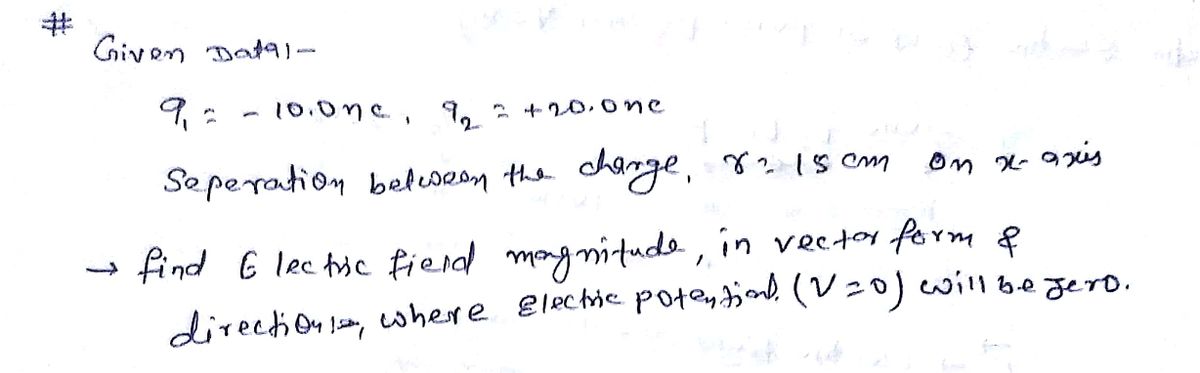 #
Given Data:-
q₁ = -10.0nc, q₂ = +20.0nc
Seperation between the charge, r = 15 cm on x-axis
→ find Electric field magnitude, in vector form &
directions, where Electric potential (V=0) will be zero.